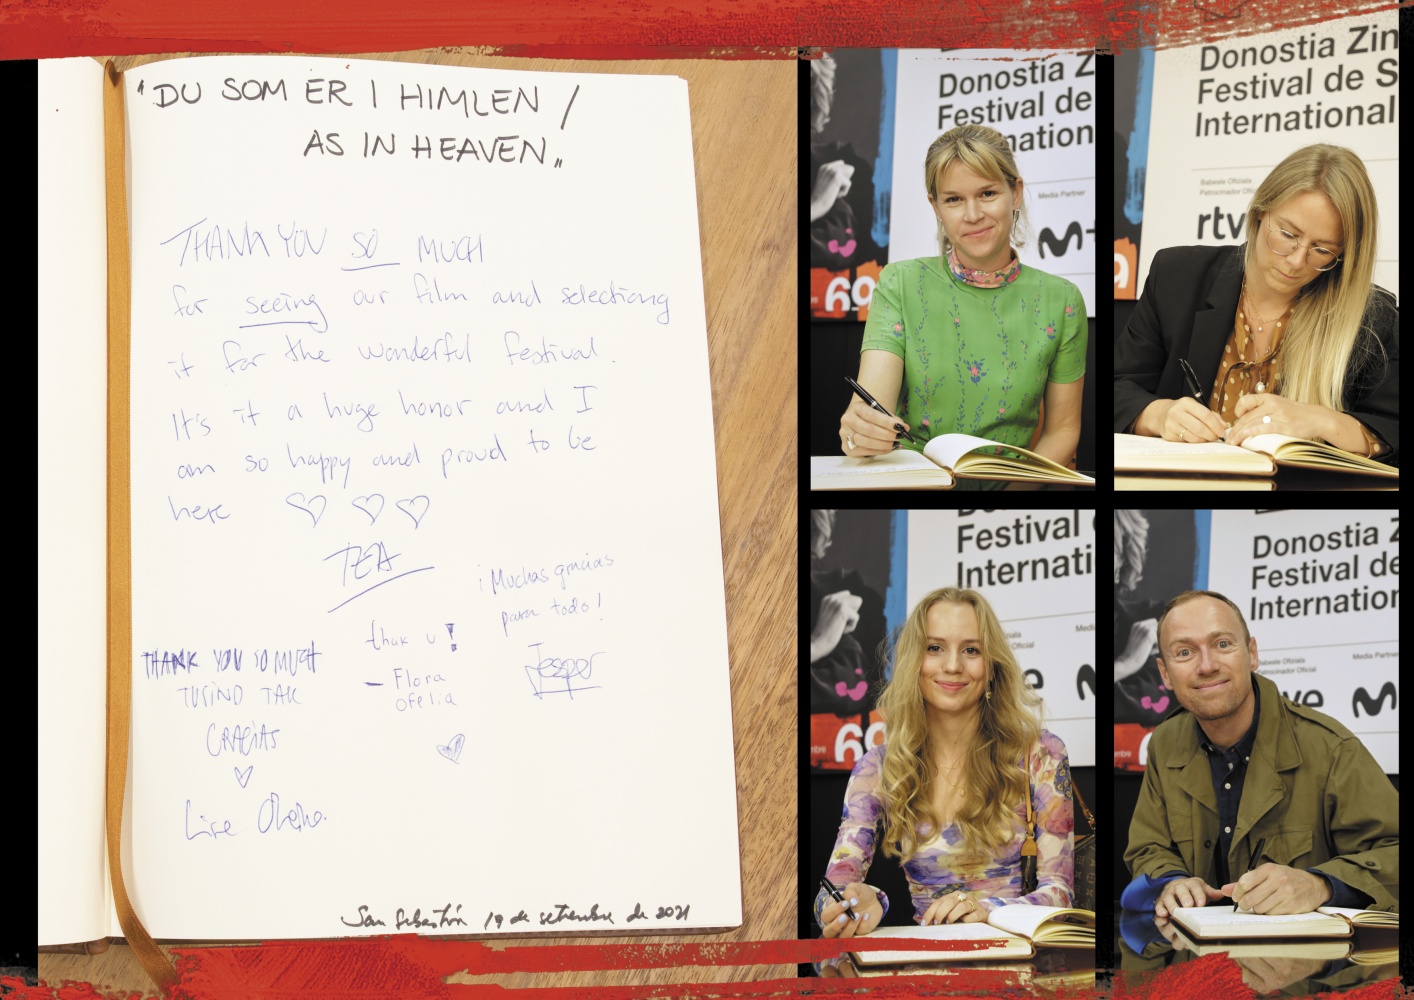 "DU SOM ER I HIMLEN /
AS IN HEAVEN"
THANK YOU SO MUCH
for seeing our film and selectiong
it for the wonderful festival.
It's it a huge honor and I
am so happy and proud to be
here ♡ ♡ ♡
TEA
¡Muchas gracias
para todo!
Jesper
thak u!
– Flora
ofelia
THANK YOU SO MUCH
TUSIND TAK
GRACIAS
♡
Lise
San Sebastián 19 de setiembre de 2021
Donostia Z
Festival de
nation
Media Partner
M+
69
Donostia Zin
Festival de S
International
Babesle Ofiziala
Patrocinador Ofic
rtv
9
Festival
Internati
Oficial
Medi
e
69
mbre
Donostia Z
Festival de
Internation
Babesle Ofiziala
Patrocinador Oficial
Media Partner
ve
M